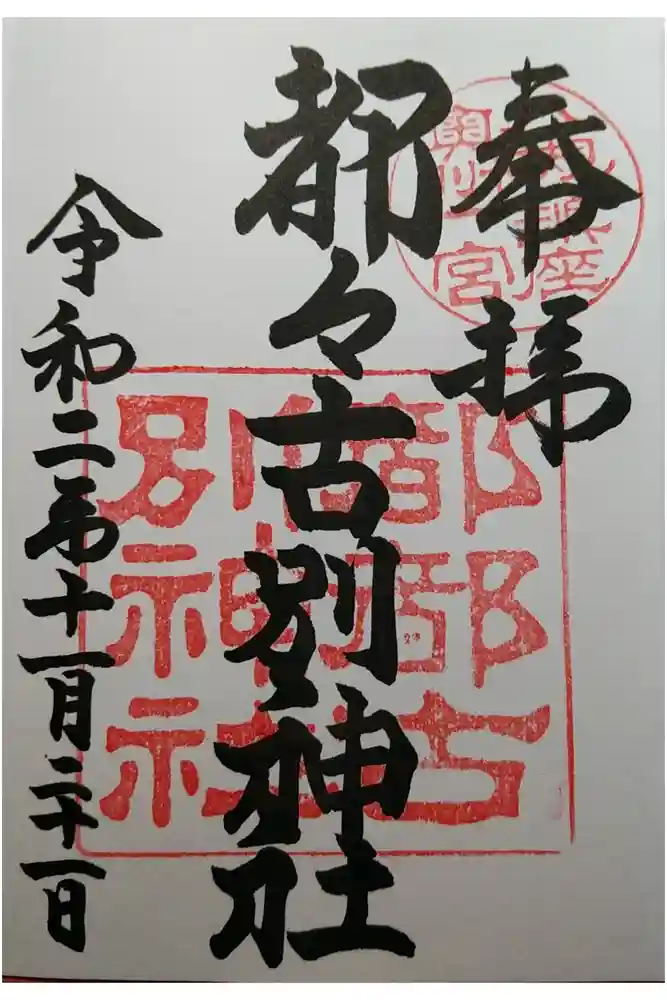 奉拝
都々古別神社
令和二年十一月二十一日
都都古
別神社
一宮